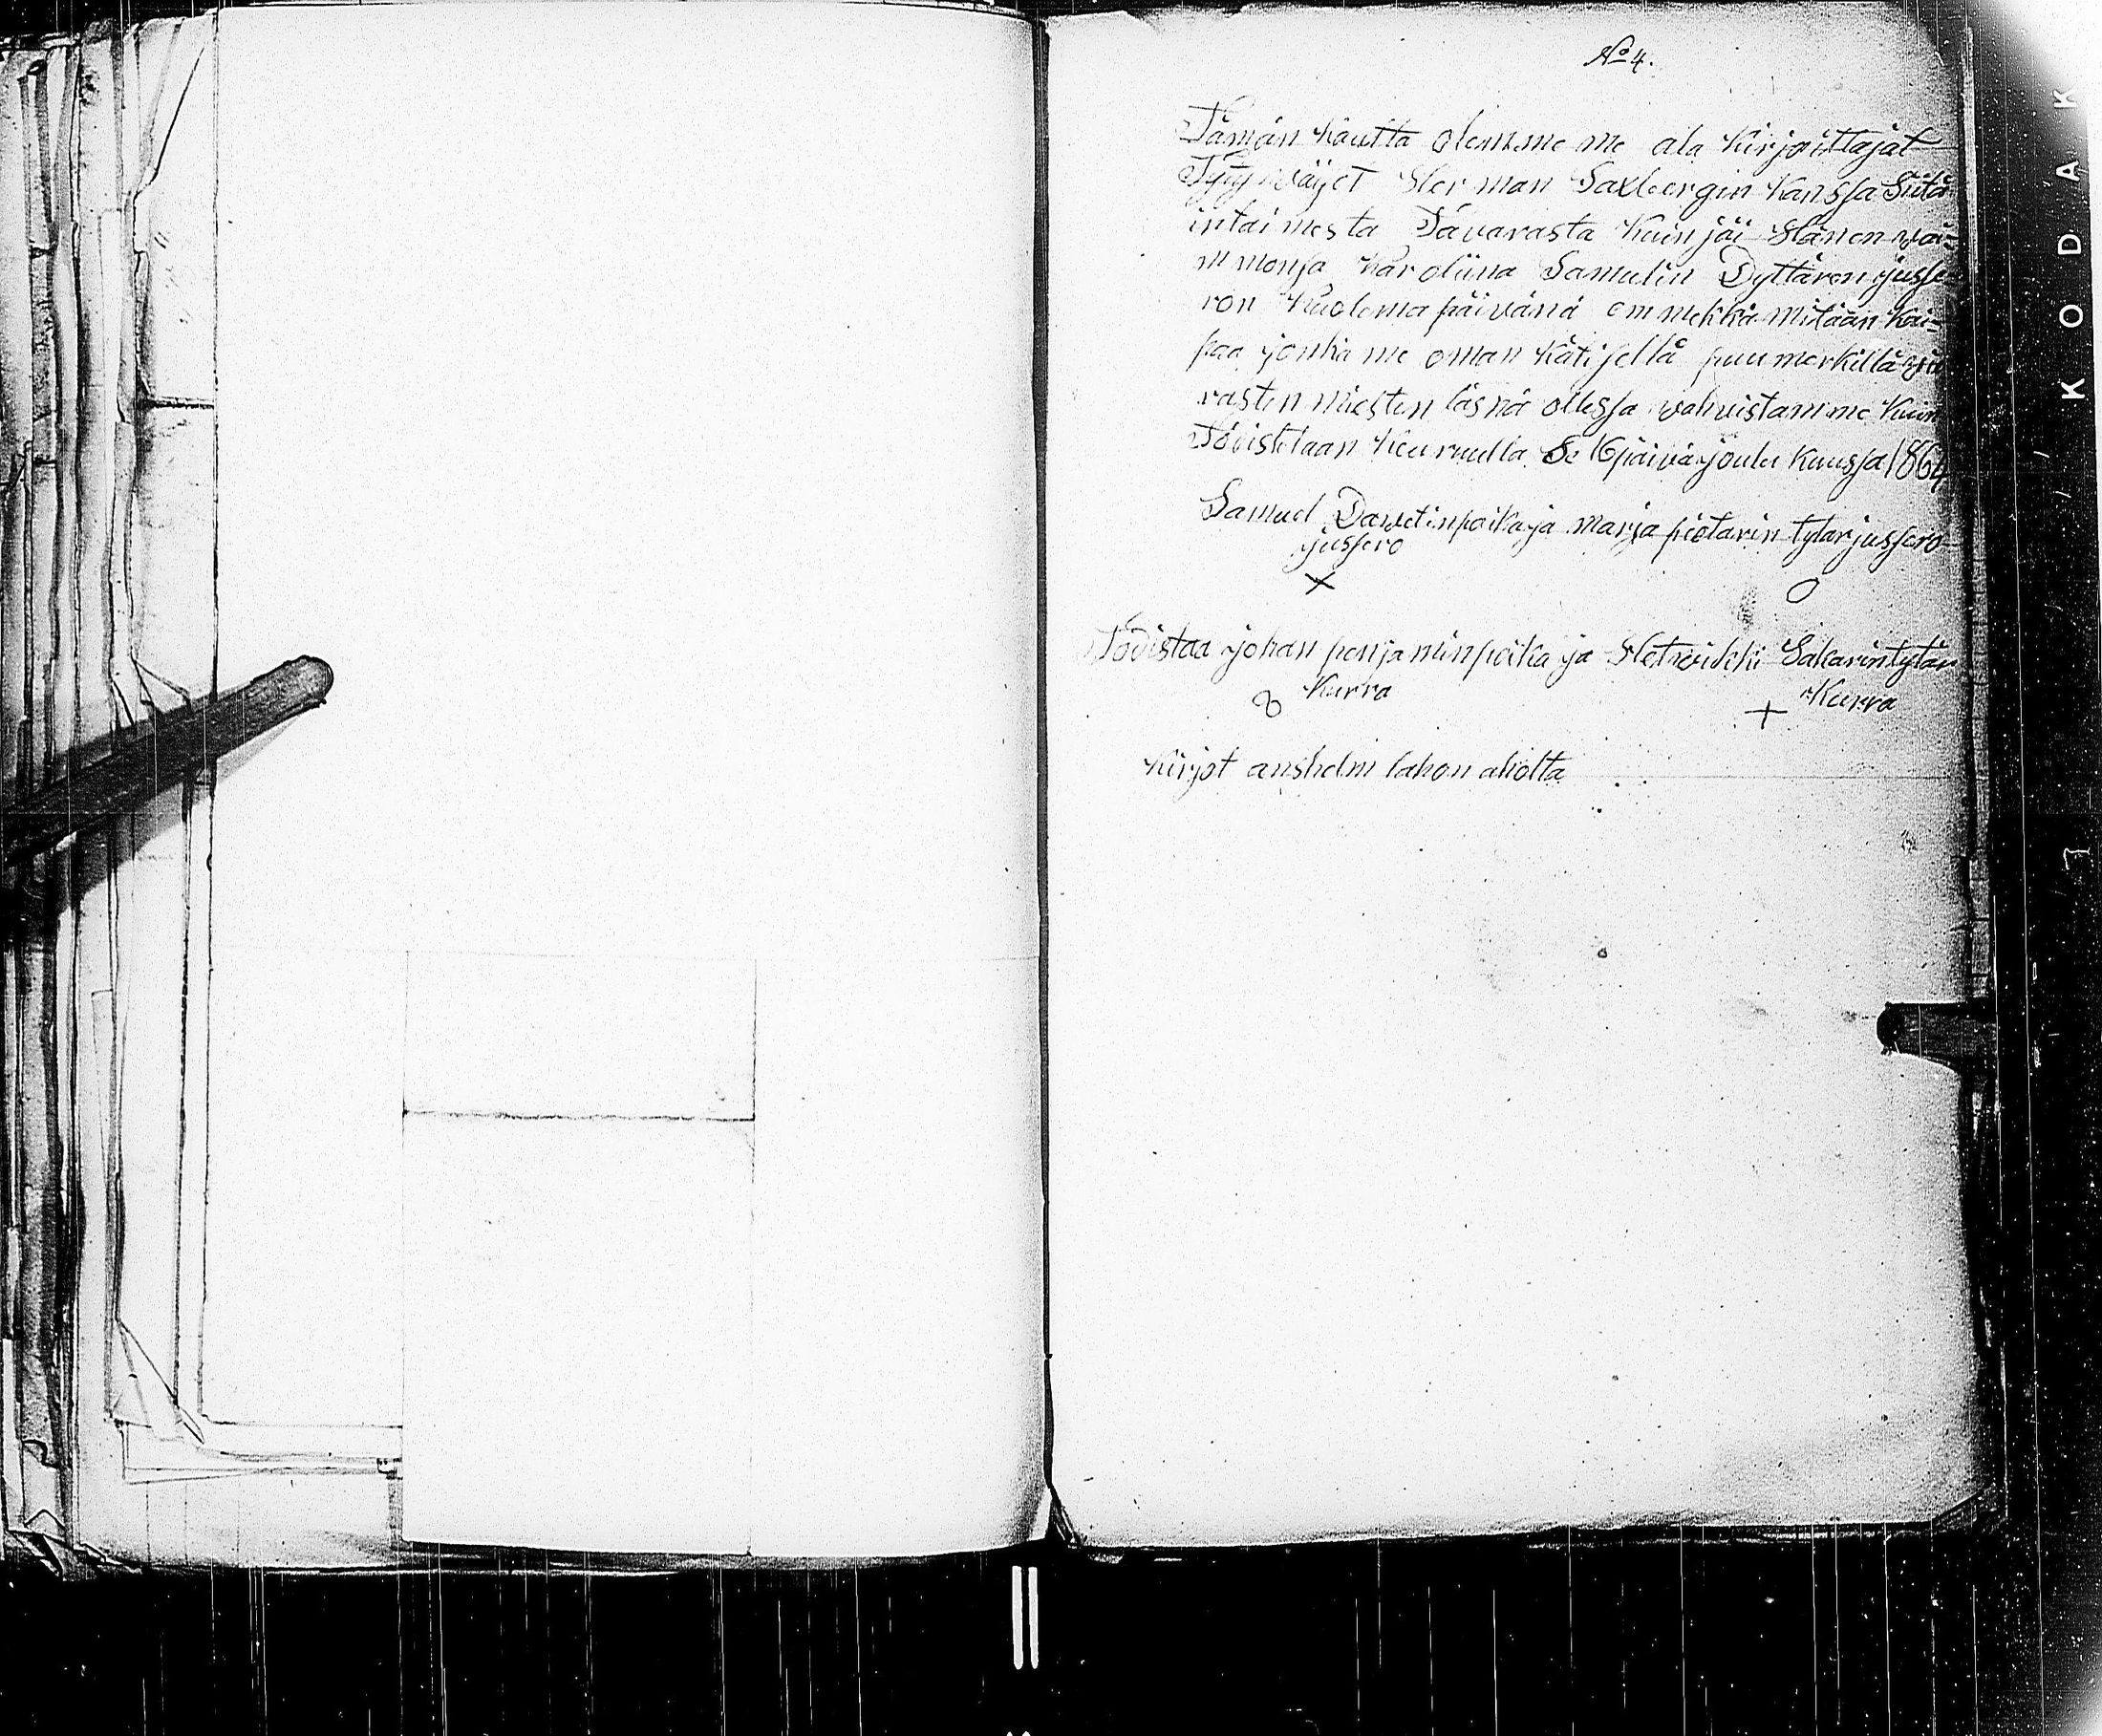 No 4.
Tämän kautta olemme me ala kirjoittajat
Tytywäyet Herman Saxbergin kanssa Siitä
intaimesta Tavarasta kuin jäi Hänen wai=
mmonsa karoliina Samulin Dyttären jusse=
ron kuolema päivänä emmekkä mitään kai=
paa jonka me oman kätisellä puu merkillä
rasten miesten läsnä ollessa vahvistamme kuin
Tovistetaan keuruulla Se 16 päivä joulu kuussa 1864
Samuel Davetinpoika ja marja pietarin tytär jussero
jussero
x o
Tovistaa johan penjaminpoika ja Hetwikki Sakarintytär
kurra Kurra
8 +
kirjot anshelm lahon aholta
KODAK